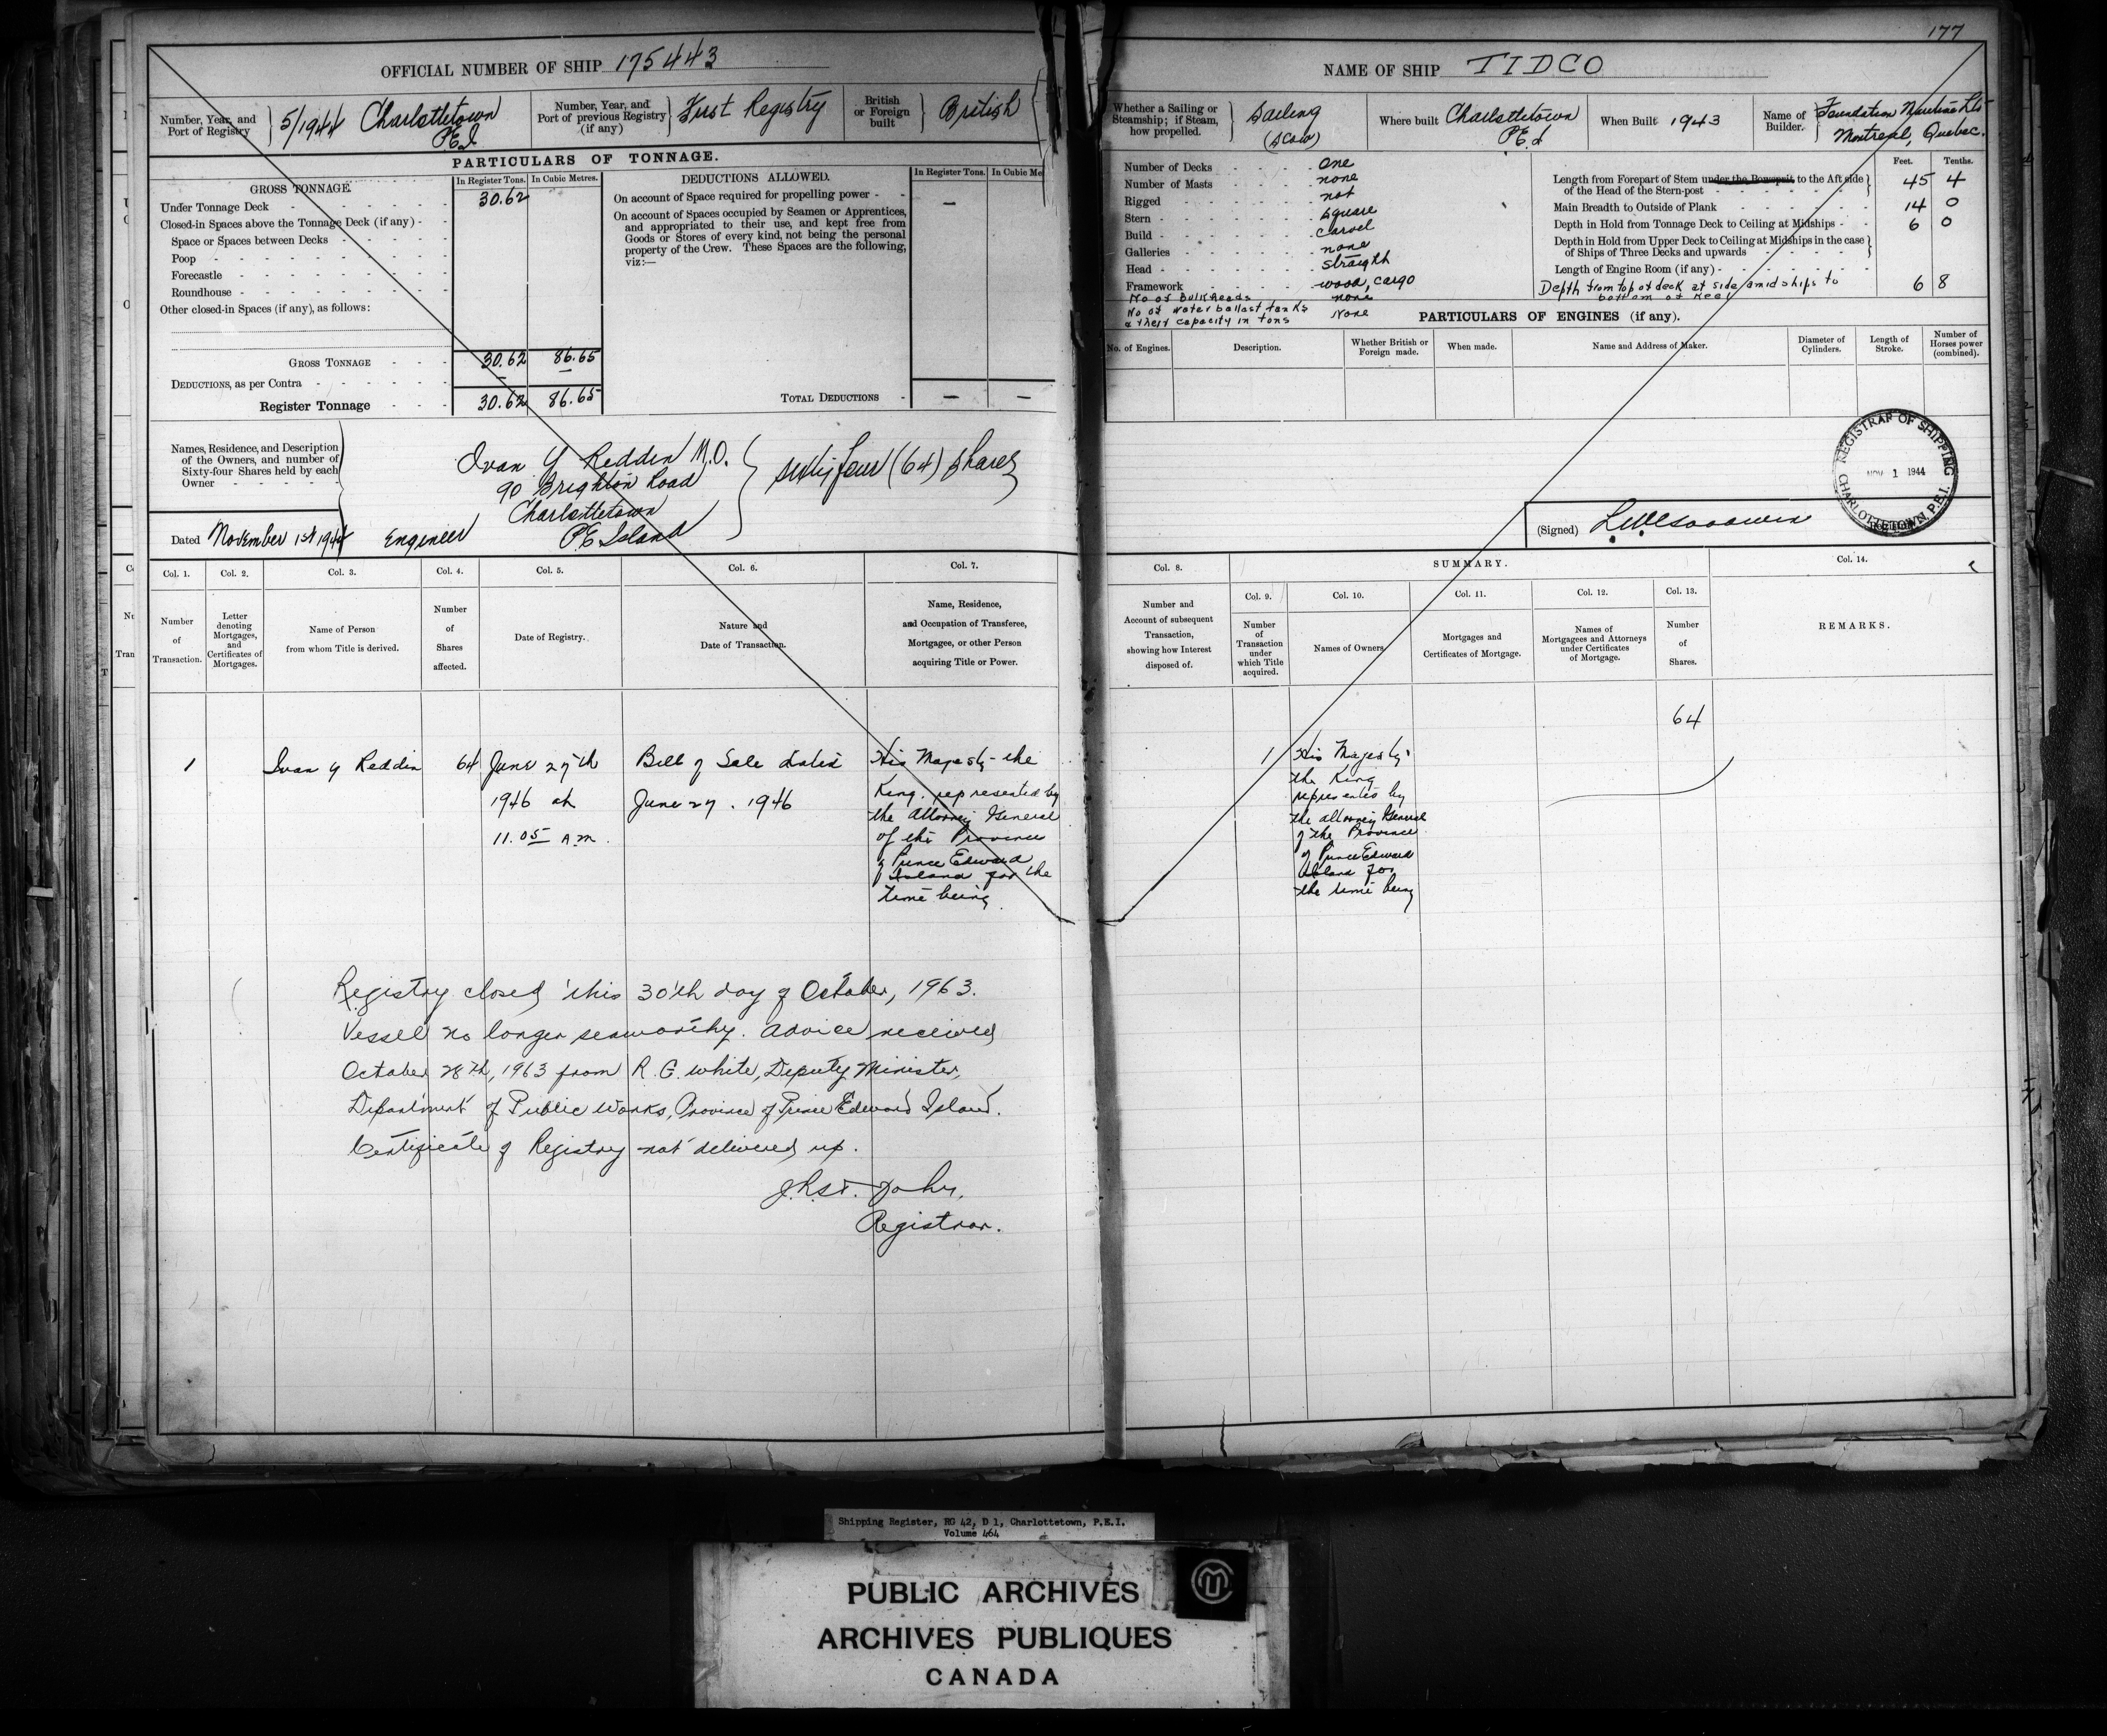 177
OFFICIAL NUMBER OF SHIP 175443
Number, Year, and Port of Registry } 5/1944 Charlottetown P.E.I
Number, Year, and Port of previous Registry (if any) } First Registry
British or Foreign built } British
PARTICULARS OF TONNAGE.
GROSS TONNAGE. In Register Tons. In Cubic Metres.
Under Tonnage Deck 30.62
Closed-in Spaces above the Tonnage Deck (if any)
Space or Spaces between Decks
Poop
Forecastle
Roundhouse
Other closed-in Spaces (if any), as follows:
GROSS TONNAGE 30.62 86.65
DEDUCTIONS, as per Contra — —
Register Tonnage 30.62 86.65
DEDUCTIONS ALLOWED. In Register Tons. In Cubic Me
On account of Space required for propelling power —
On account of Spaces occupied by Seamen or Apprentices,
and appropriated to their use, and kept free from
Goods or Stores of every kind, not being the personal
property of the Crew. These Spaces are the following,
viz:—
TOTAL DEDUCTIONS — —
Names, Residence, and Description
of the Owners, and number of
Sixty-four Shares held by each
Owner
Ivan Y Reddin M.O.
90 Brighton Road
Charlottetown
P.E Island
sixty four (64) shares
Dated November 1st 1944 Engineer
NAME OF SHIP TIDCO
Whether a Sailing or Steamship; if Steam, how propelled. } Sailing (scow)
Where built Charlottetown P.E.I
When Built 1943
Name of Builder. } Foundation Maritime Ltd Montreal, Quebec.
Number of Decks One
Number of Masts none
Rigged not
Stern square
Build carvel
Galleries none
Head straigth
Framework wood, cargo
No of Bulkheads none
No of water ballast tanks None
& their capacity in tons
Feet. Tenths.
Length from Forepart of Stem under the Bowsprit to the Aft side
of the Head of the Stern-post 45 4
Main Breadth to Outside of Plank 14 0
Depth in Hold from Tonnage Deck to Ceiling at Midships 6 0
Depth in Hold from Upper Deck to Ceiling at Midships in the case
of Ships of Three Decks and upwards
Length of Engine Room (if any)
Depth from top of deck at side amidships to
bottom of keel 6 8
PARTICULARS OF ENGINES (if any).
No. of Engines.
Description.
Whether British or Foreign made.
When made.
Name and Address of Maker.
Diameter of Cylinders.
Length of Stroke.
Number of Horses power (combined).
REGISTRAR OF SHIPPING
NOV 1 1944
CHARLOTTETOWN, P.E.I.
(Signed)
Col. 1. Col. 2. Col. 3. Col. 4. Col. 5. Col. 6. Col. 7.
Number of Transaction.
Letter denoting Mortgages, and Certificates of Mortgages.
Name of Person from whom Title is derived.
Number of Shares affected.
Date of Registry.
Nature and Date of Transaction.
Name, Residence, and Occupation of Transferee, Mortgagee, or other Person acquiring Title or Power.
Col. 8.
Number and Account of subsequent Transaction, showing how Interest disposed of.
SUMMARY.
Col. 9. Col. 10. Col. 11. Col. 12. Col. 13.
Number of Transaction under which Title acquired.
Names of Owners.
Mortgages and Certificates of Mortgage.
Names of Mortgagees and Attorneys under Certificates of Mortgage.
Number of Shares.
Col. 14.
REMARKS.
1
Ivan Y Reddin
64
June 27th
1946 at
11.05 A.M.
Bill of Sale dated
June 27. 1946
His Majesty the
King. represented by
the Attorney General
of the Province
of Prince Edward
Island for the
time being
64
1
His Majesty
the King
represented by
the Attorney General
of the Province
of Prince Edward
Island for
the time being
Registry closed this 30th day of October, 1963.
Vessel no longer seaworthy. Advice received
October 28th, 1963 from R. G. White, Deputy Minister,
Department of Public Works, Province of Prince Edward Island.
Certificate of Registry not delivered up.
J.R. St. John.
Registrar.
Shipping Register, RG 42, D 1, Charlottetown, P.E.I.
Volume 464
PUBLIC ARCHIVES
ARCHIVES PUBLIQUES
CANADA